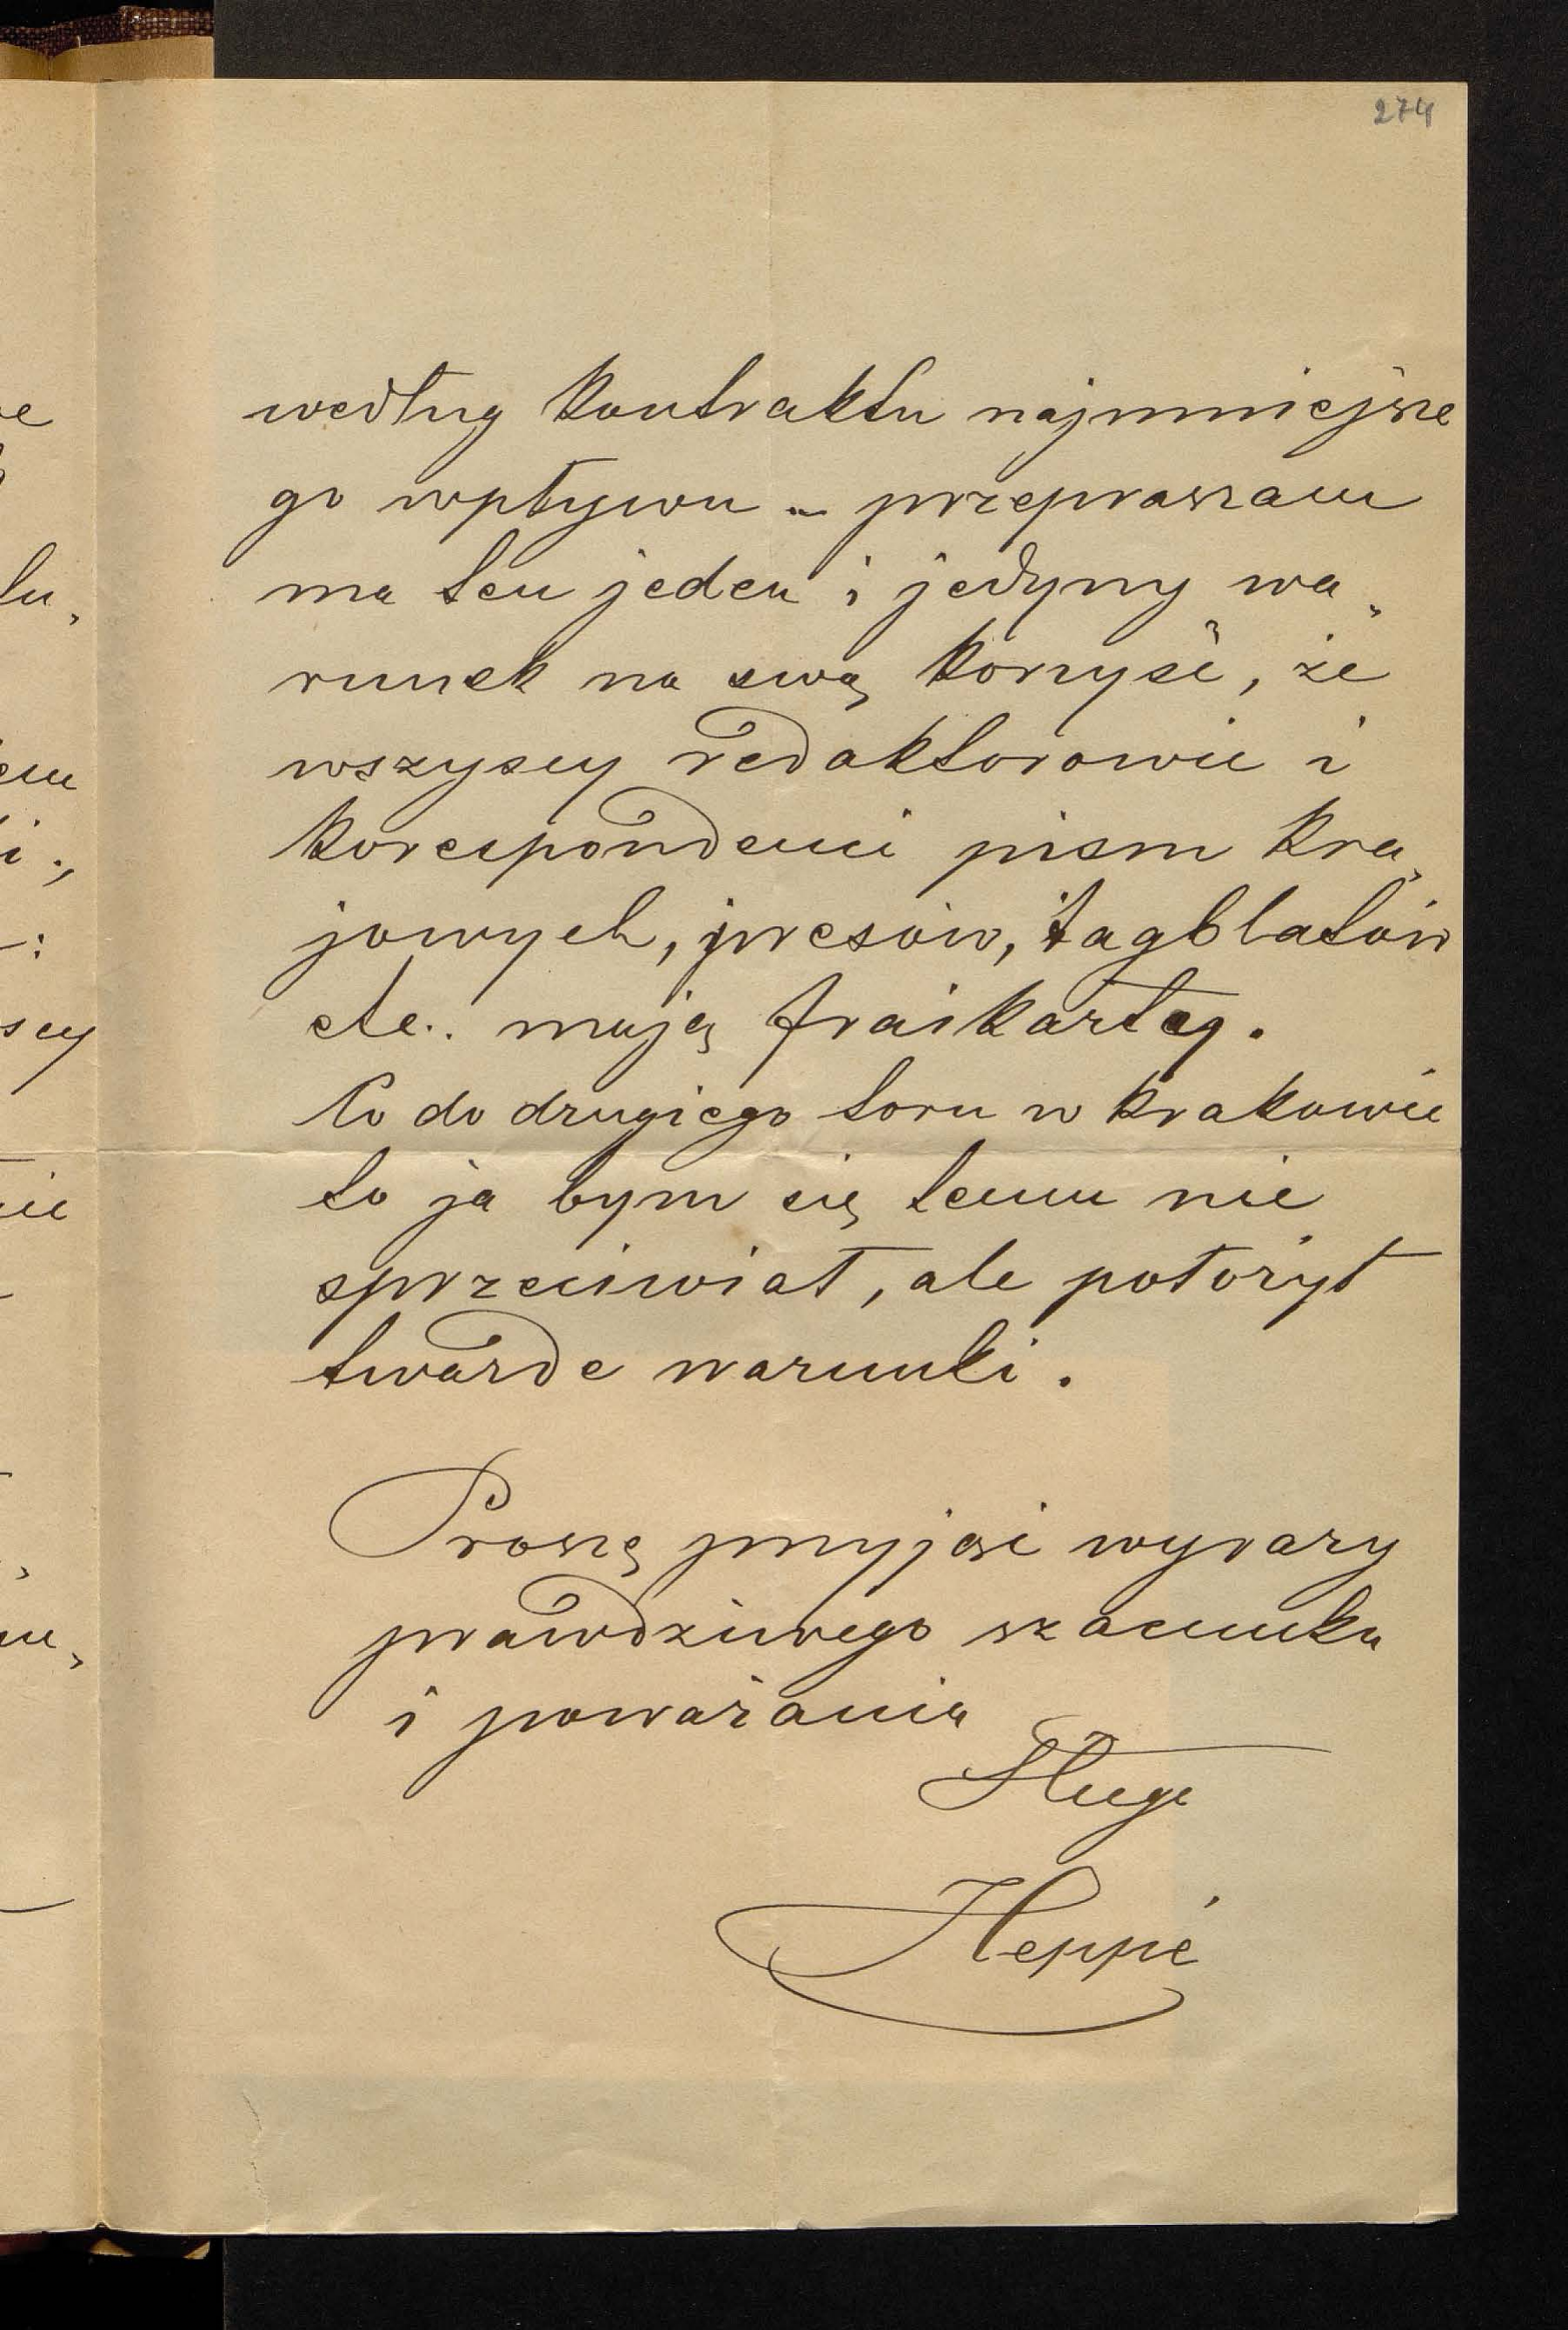 274
według kontraktu najmniejsze
go wpływu – przepraszam
ma ten jeden i jedyny wa„
runek na swą korzyść, że
wszyscy redaktorowie i
korespondenci pism kra„
jowych, presów, tagblatów
etc. mają fraikartę.
Co do drugiego toru w Krakowie
to ja bym się temu nie
sprzeciwiał, ale położył
twarde warunki.
Proszę przyjąć wyrazy
prawdziwego szacunku
i poważania
Sługa
Heppé